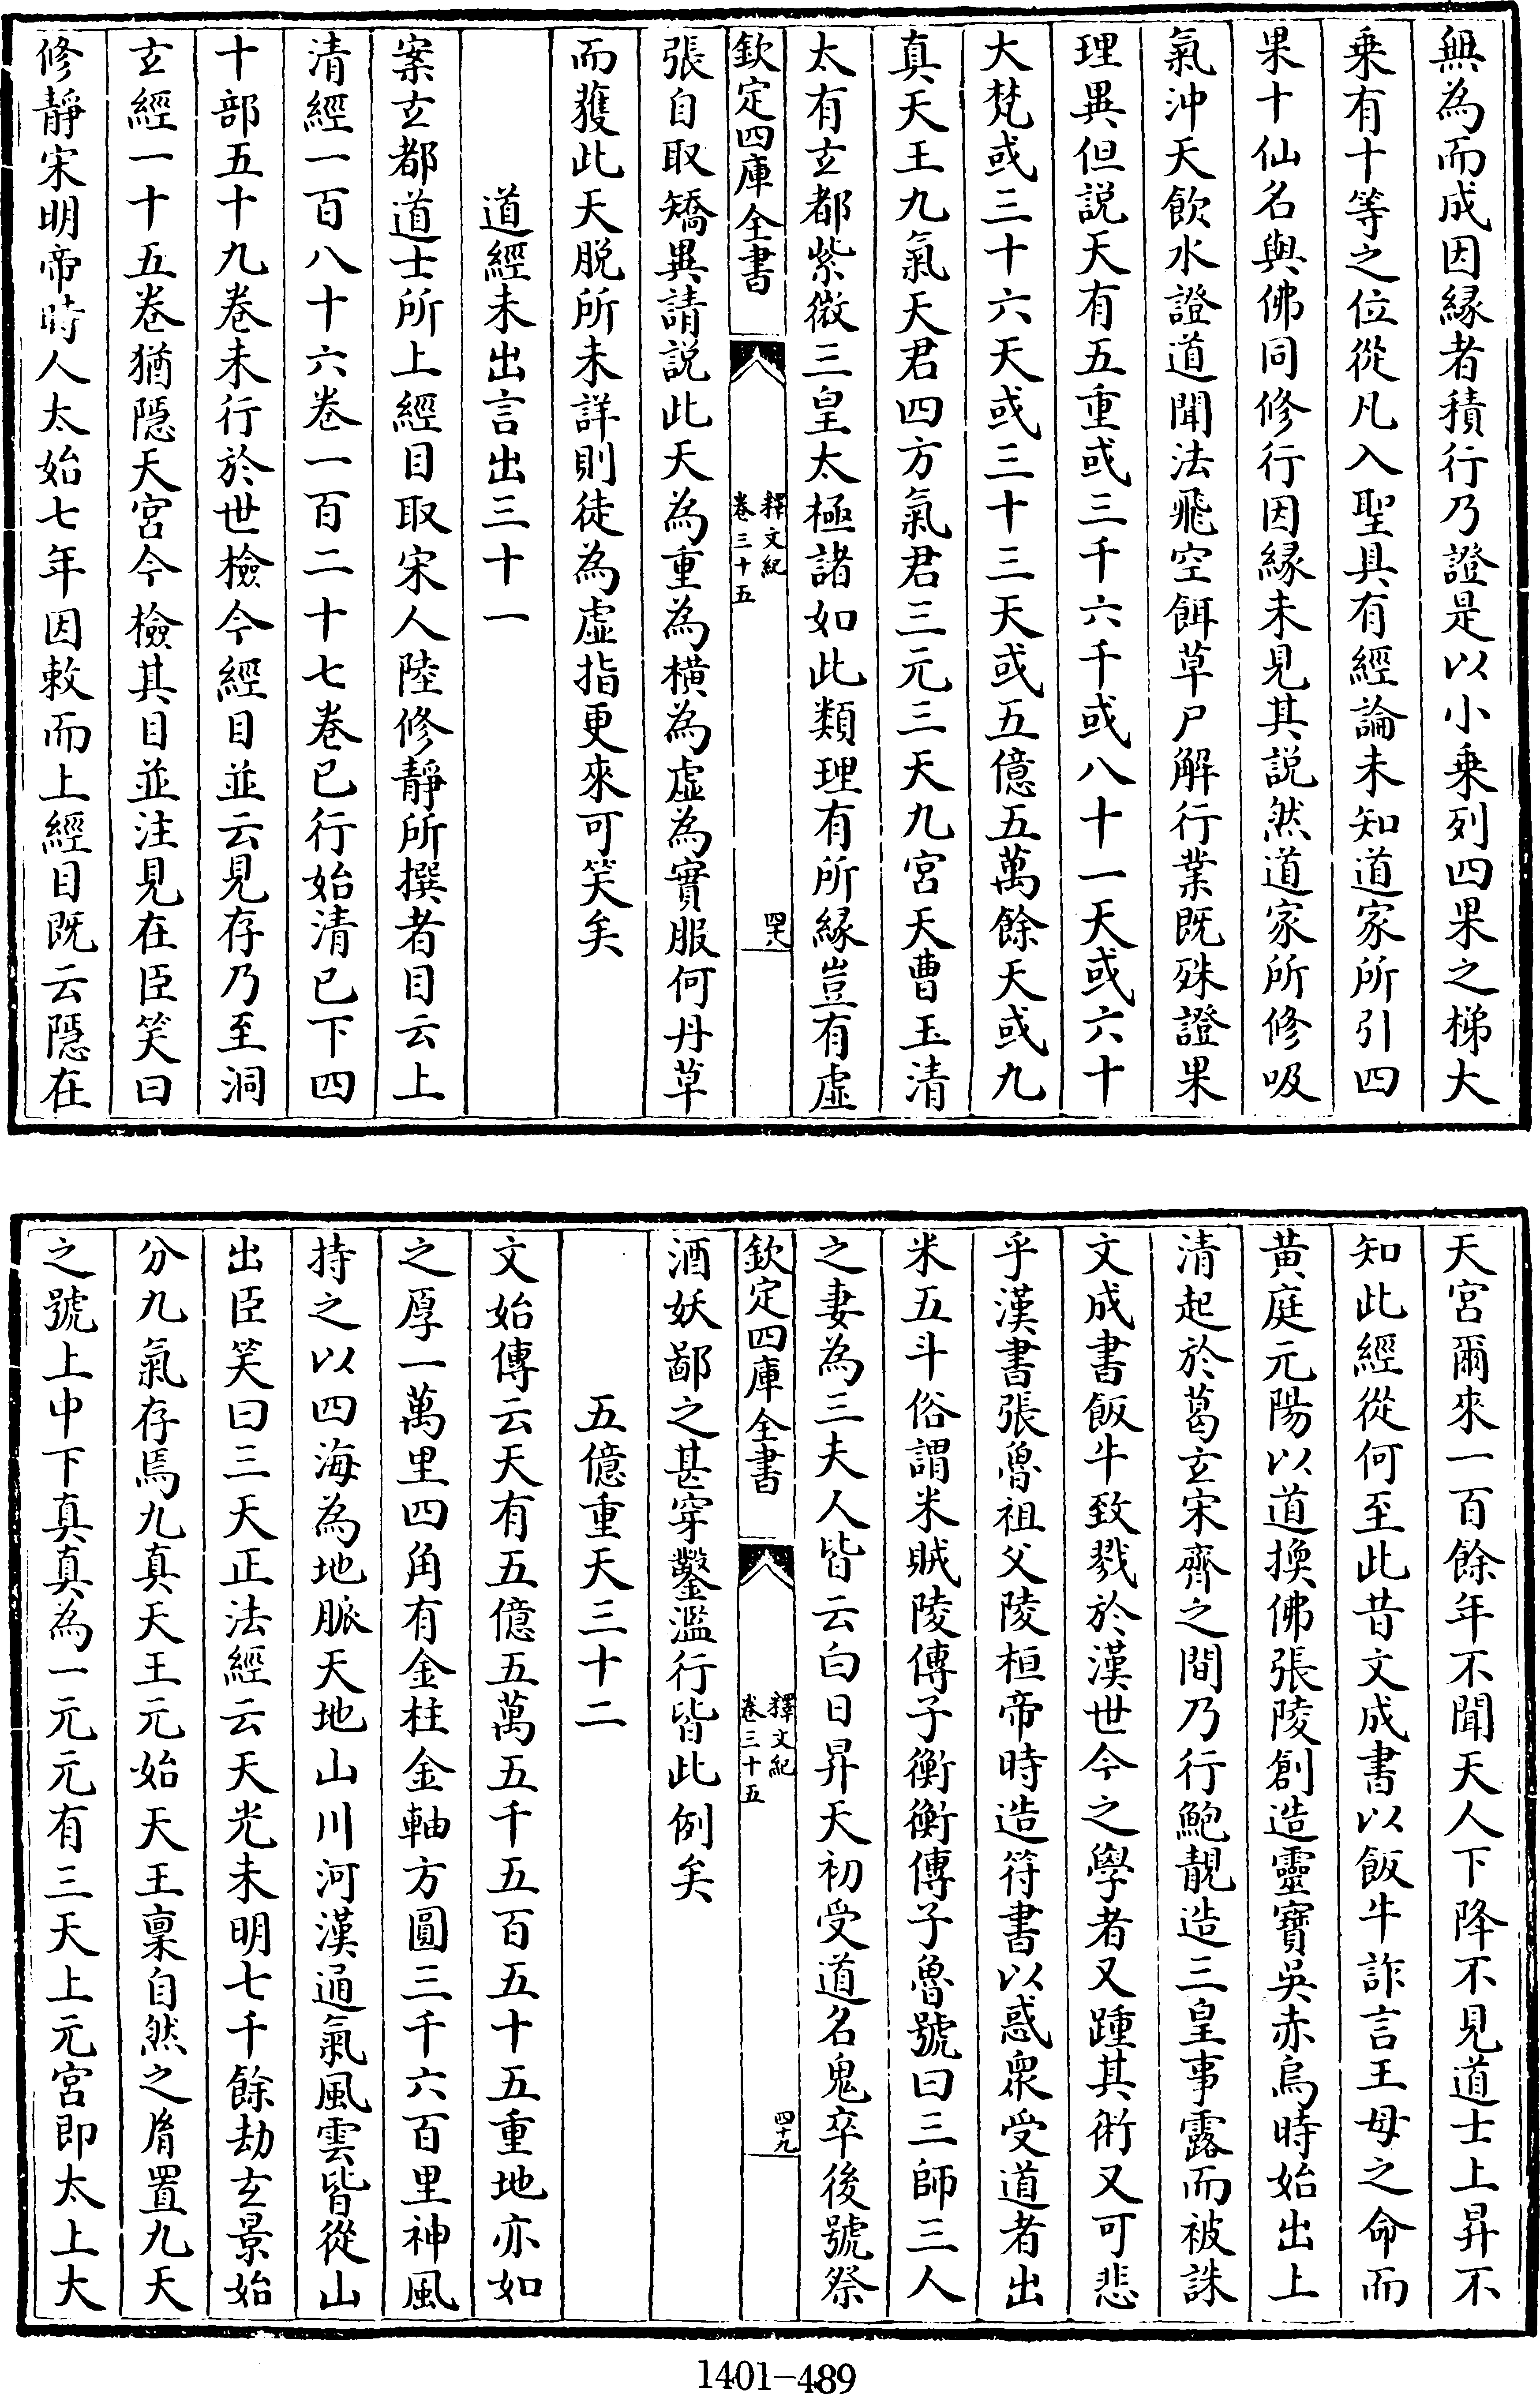 無為而成因縁者積行乃證是以小乗列四果之梯大
乗有十等之位從凡入聖具有經論未知道家所引四
果十仙名與佛同修行因縁未見其説然道家所修吸
氣沖天飲水證道聞法飛空餌草尸解行業既殊證果
理異但説天有五重或三千六千或八十一天或六十
大梵或三十六天或三十三天或五億五萬餘天或九
真天王九氣天君四方氣君三元三天九宮天曹玉清
太有玄都紫微三皇太極諸如此類理有所縁豈有虛
欽定四庫全書
釋文紀
卷三十五
四八
張自取矯異請説此天為重為横為虛為實服何丹草
而獲此天脱所未詳則徒為虛指更來可笑矣
道經未出言出三十一
案玄都道士所上經目取宋人陸修靜所撰者目云上
清經一百八十六卷一百二十七卷已行始清已下四
十部五十九卷未行於世檢今經目並云見存乃至洞
玄經一十五卷猶隠天宮今檢其目並注見在臣笑曰
修靜宋明帝時人太始七年因敕而上經目既云隠在
天宮爾來一百餘年不聞天人下降不見道士上昇不
知此經從何至此昔文成書以飯牛詐言王母之命而
黄庭元陽以道換佛張陵創造靈寳吳赤烏時始出上
清起於葛玄宋齊之間乃行鮑靚造三皇事露而被誅
文成書飯牛致戮於漢世今之學者又踵其術又可悲
乎漢書張魯祖父陵桓帝時造符書以惑衆受道者出
米五斗俗謂米賊陵傳子衡衡傳子魯號曰三師三人
之妻為三夫人皆云白日昇天初受道名鬼卒後號祭
欽定四庫全書
釋文紀
卷三十五
四十九
酒妖鄙之甚穿鑿濫行皆此例矣
五億重天三十二
文始傳云天有五億五萬五千五百五十五重地亦如
之厚一萬里四角有金柱金軸方圓三千六百里神風
持之以四海為地脈天地山川河漢通氣風雲皆從山
出臣笑曰三天正法經云天光未明七千餘劫玄景始
分九氣存焉九真天王元始天王稟自然之胤置九天
之號上中下真真為一元元有三天上元宮即太上大
1401-489